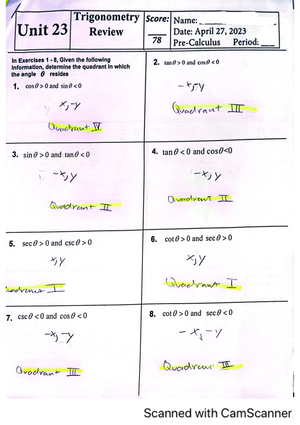 Unit 23
Trigonometry
Review
Score:
78
Name:
Date: April 27, 2023
Pre-Calculus Period:
In Exercises 1 - 8, Given the following
information, determine the quadrant in which
the angle θ resides
1. cosθ > 0 and sinθ < 0
x, -y
Quadrant IV
2. tanθ > 0 and cosθ < 0
-x, -y
Quadrant III
3. sinθ > 0 and tanθ < 0
-x, y
Quadrant II
4. tanθ < 0 and cosθ<0
-x, y
Quadrant II
5. secθ > 0 and cscθ > 0
x, y
Quadrant I
6. cotθ > 0 and secθ > 0
x, y
Quadrant I
7. cscθ < 0 and cosθ < 0
-x, -y
Quadrant III
8. cotθ > 0 and secθ < 0
-x, -y
Quadrant III
Scanned with CamScanner